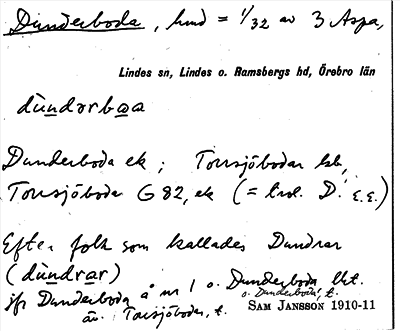 Dunderboda, hmd = 1/32 av 3 Aspa,
Lindes sn, Lindes o. Ramsbergs hd, Örebro län
dùndərbωa
Dunderboda ek; Torrsjöbodar kb,
Torrsjöboda G 82, ek (= trol. D. E.E.)
Efter folk som kallades Dundrar
(dùndrar)
jfr Dunderboda å nr 1 o. Dunderboda lht.
o. Dunderboda, t.
äv. Torrsjöbodar, t.
SAM JANSSON 1910-11